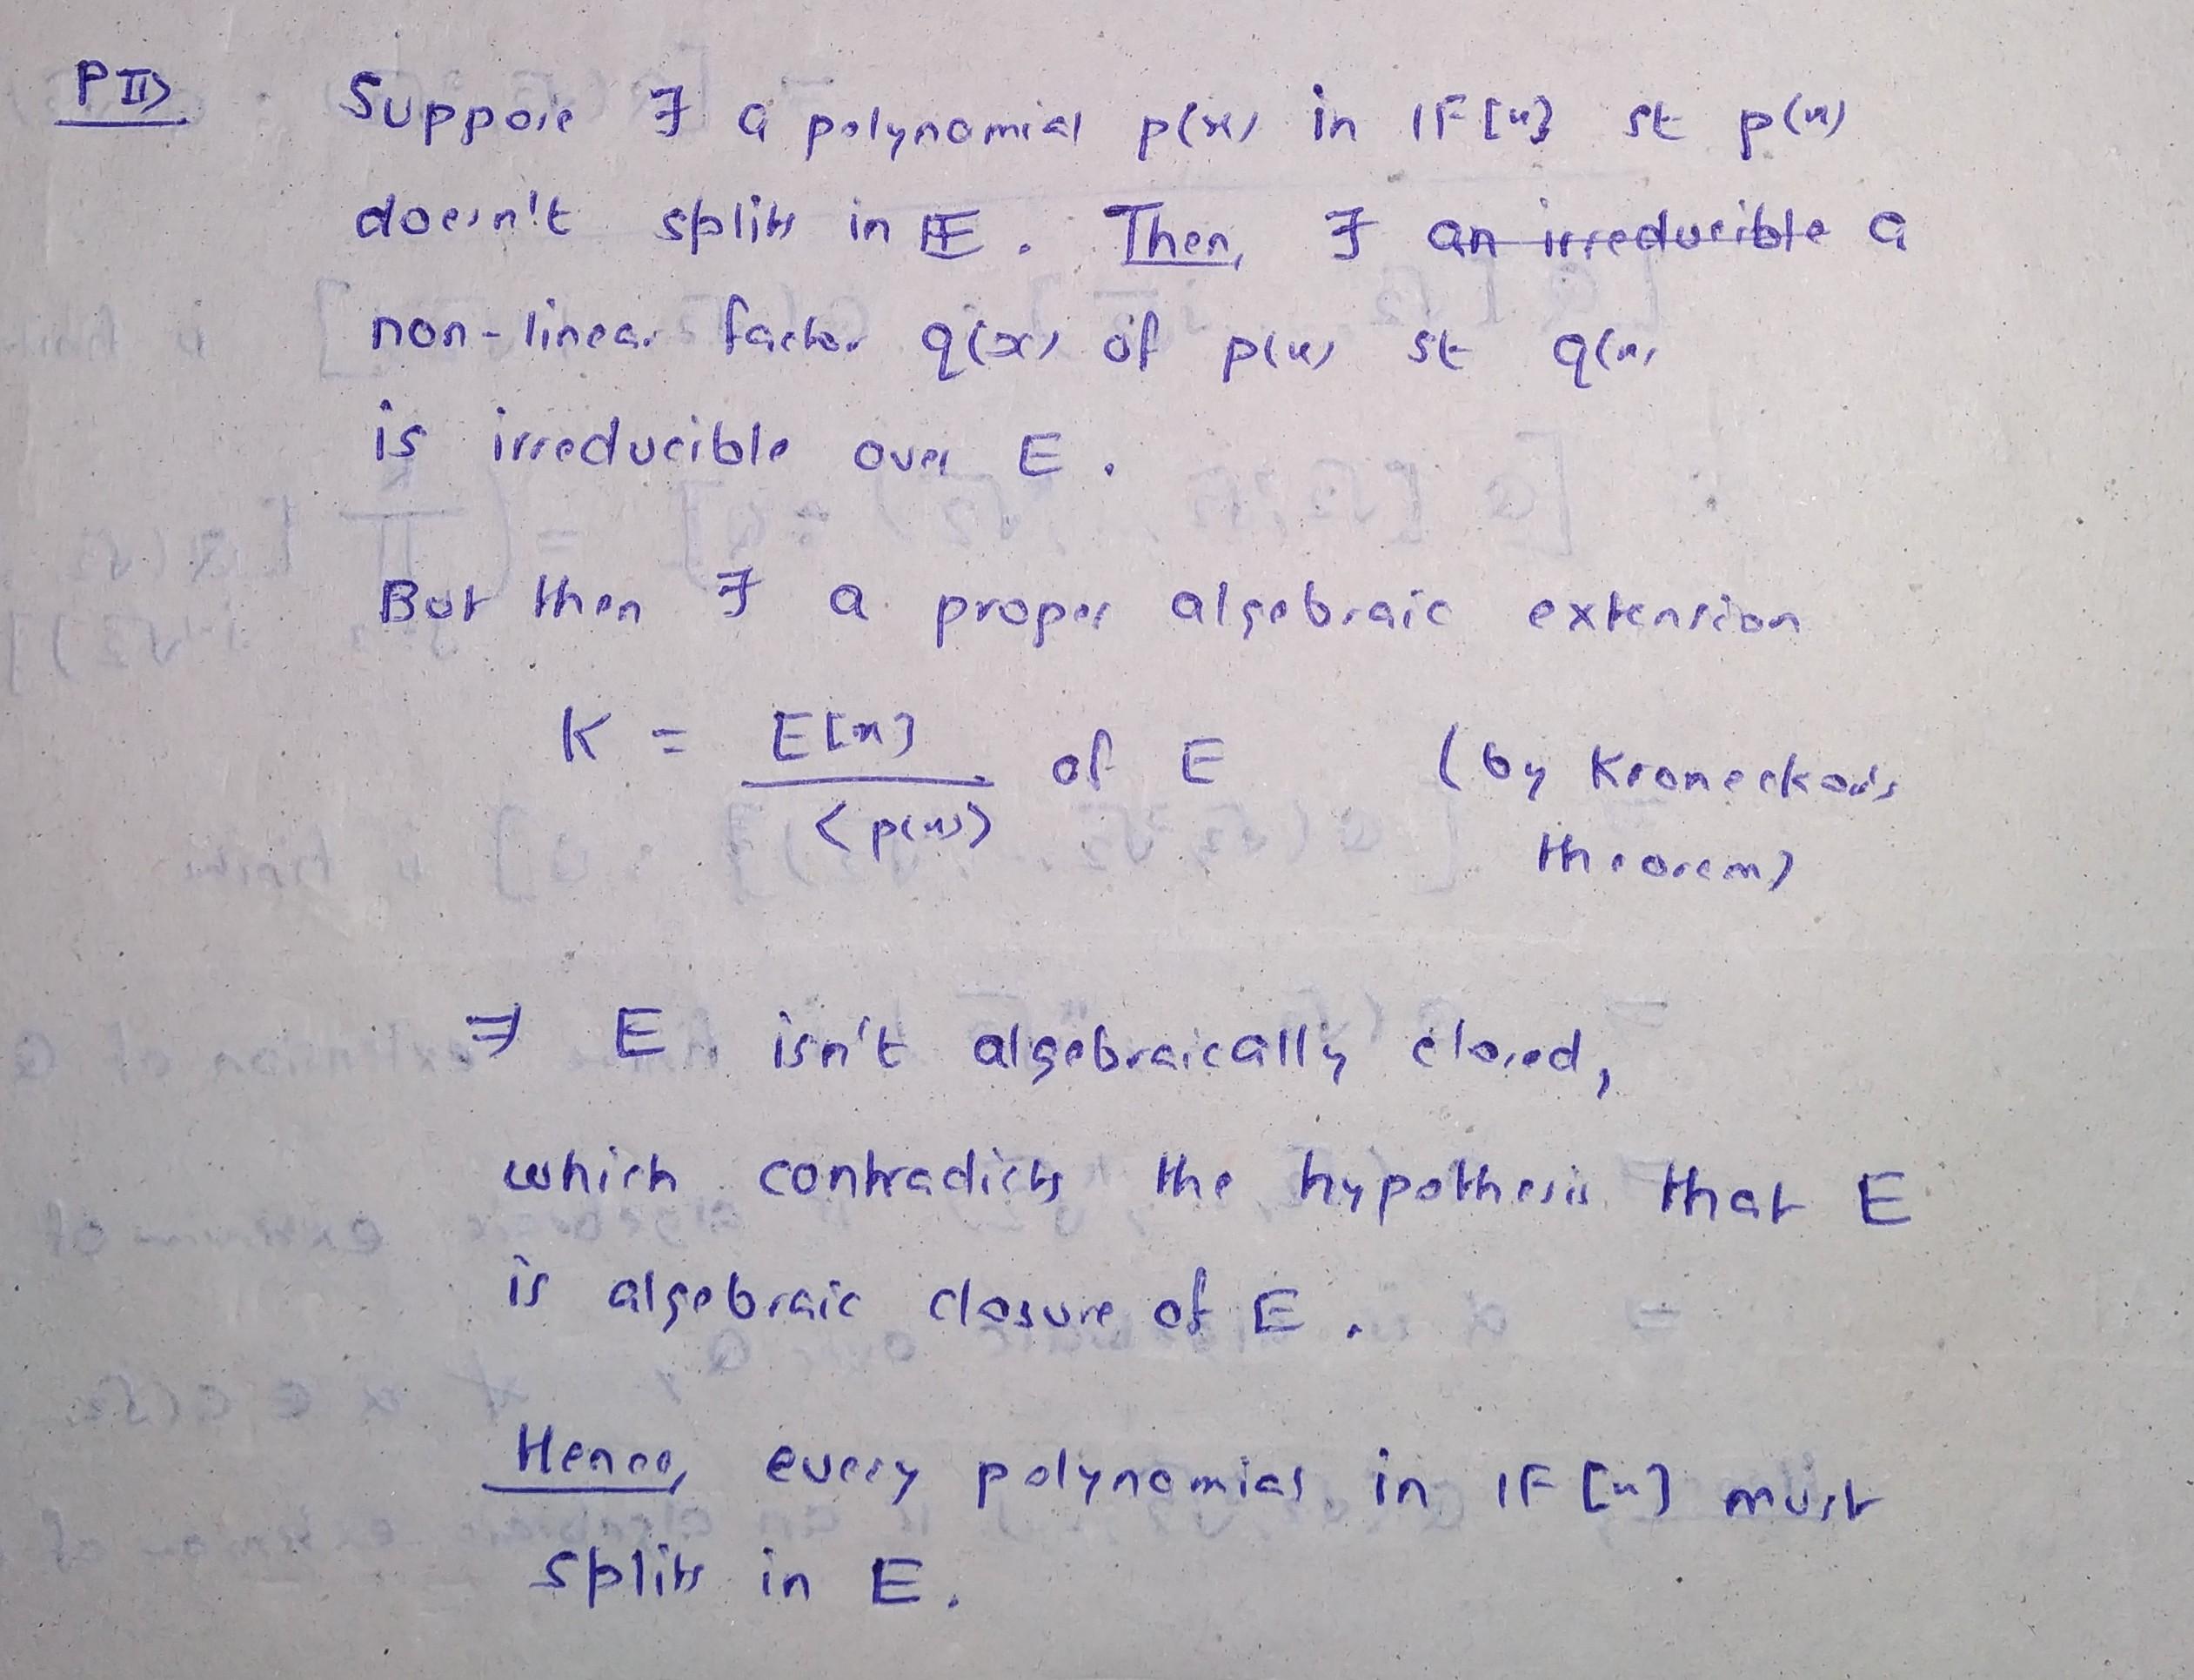 P II>
Suppose ∃ a polynomial p(x) in IF[x] st p(x)
doesn't splits in E. Then, ∃ an irreducible a
non-linear factor q(x) of p(x) st q(x)
is irreducible over E.
But then ∃ a proper algebraic extension
K = E[x] / <p(x)> of E (by Kronecker's
theorem)
⇒ E isn't algebraically closed,
which contradicts the hypothesis that E
is algebraic closure of E.
Hence, every polynomial in IF[x] must
splits in E.